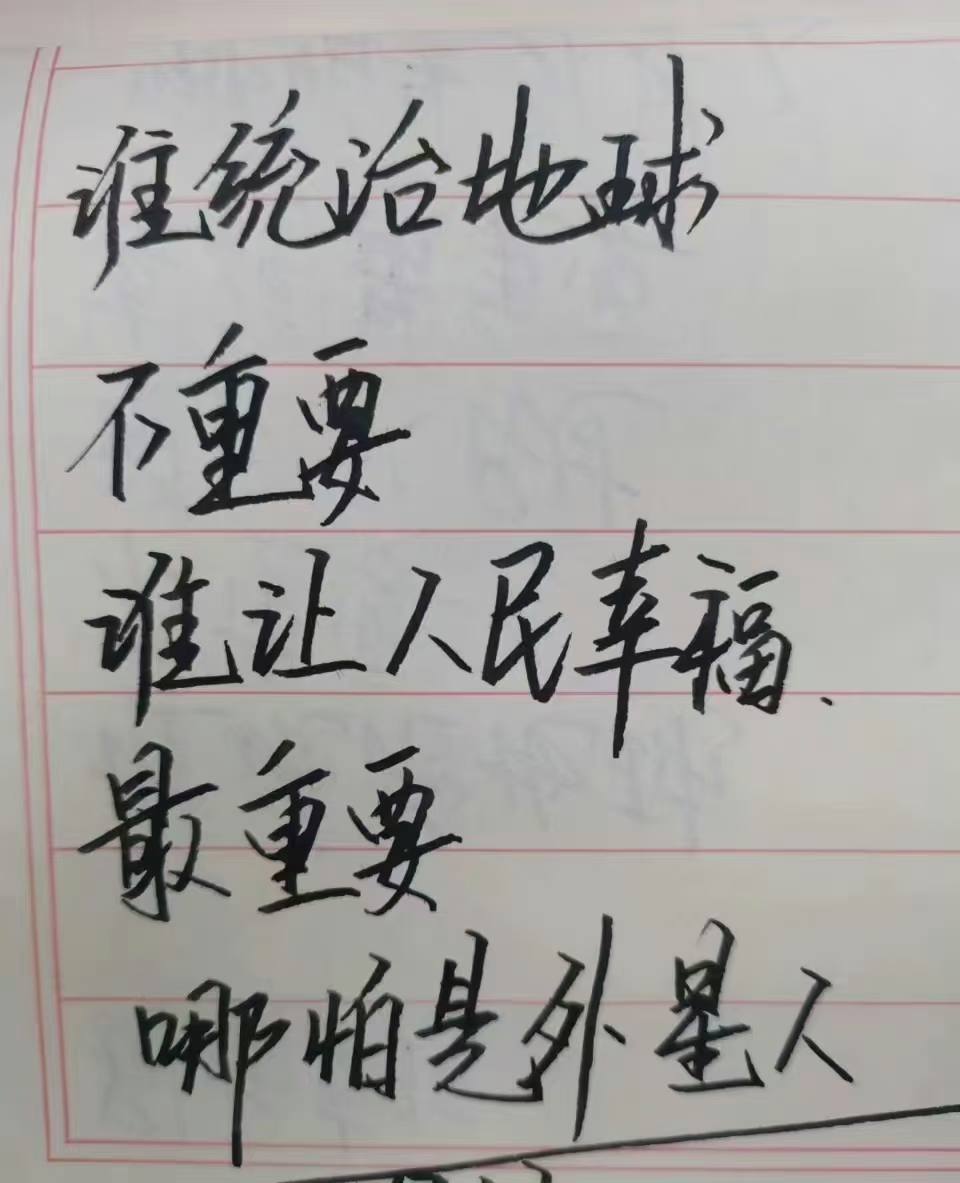 谁统治地球
不重要
谁让人民幸福.
最重要
哪怕是外星人